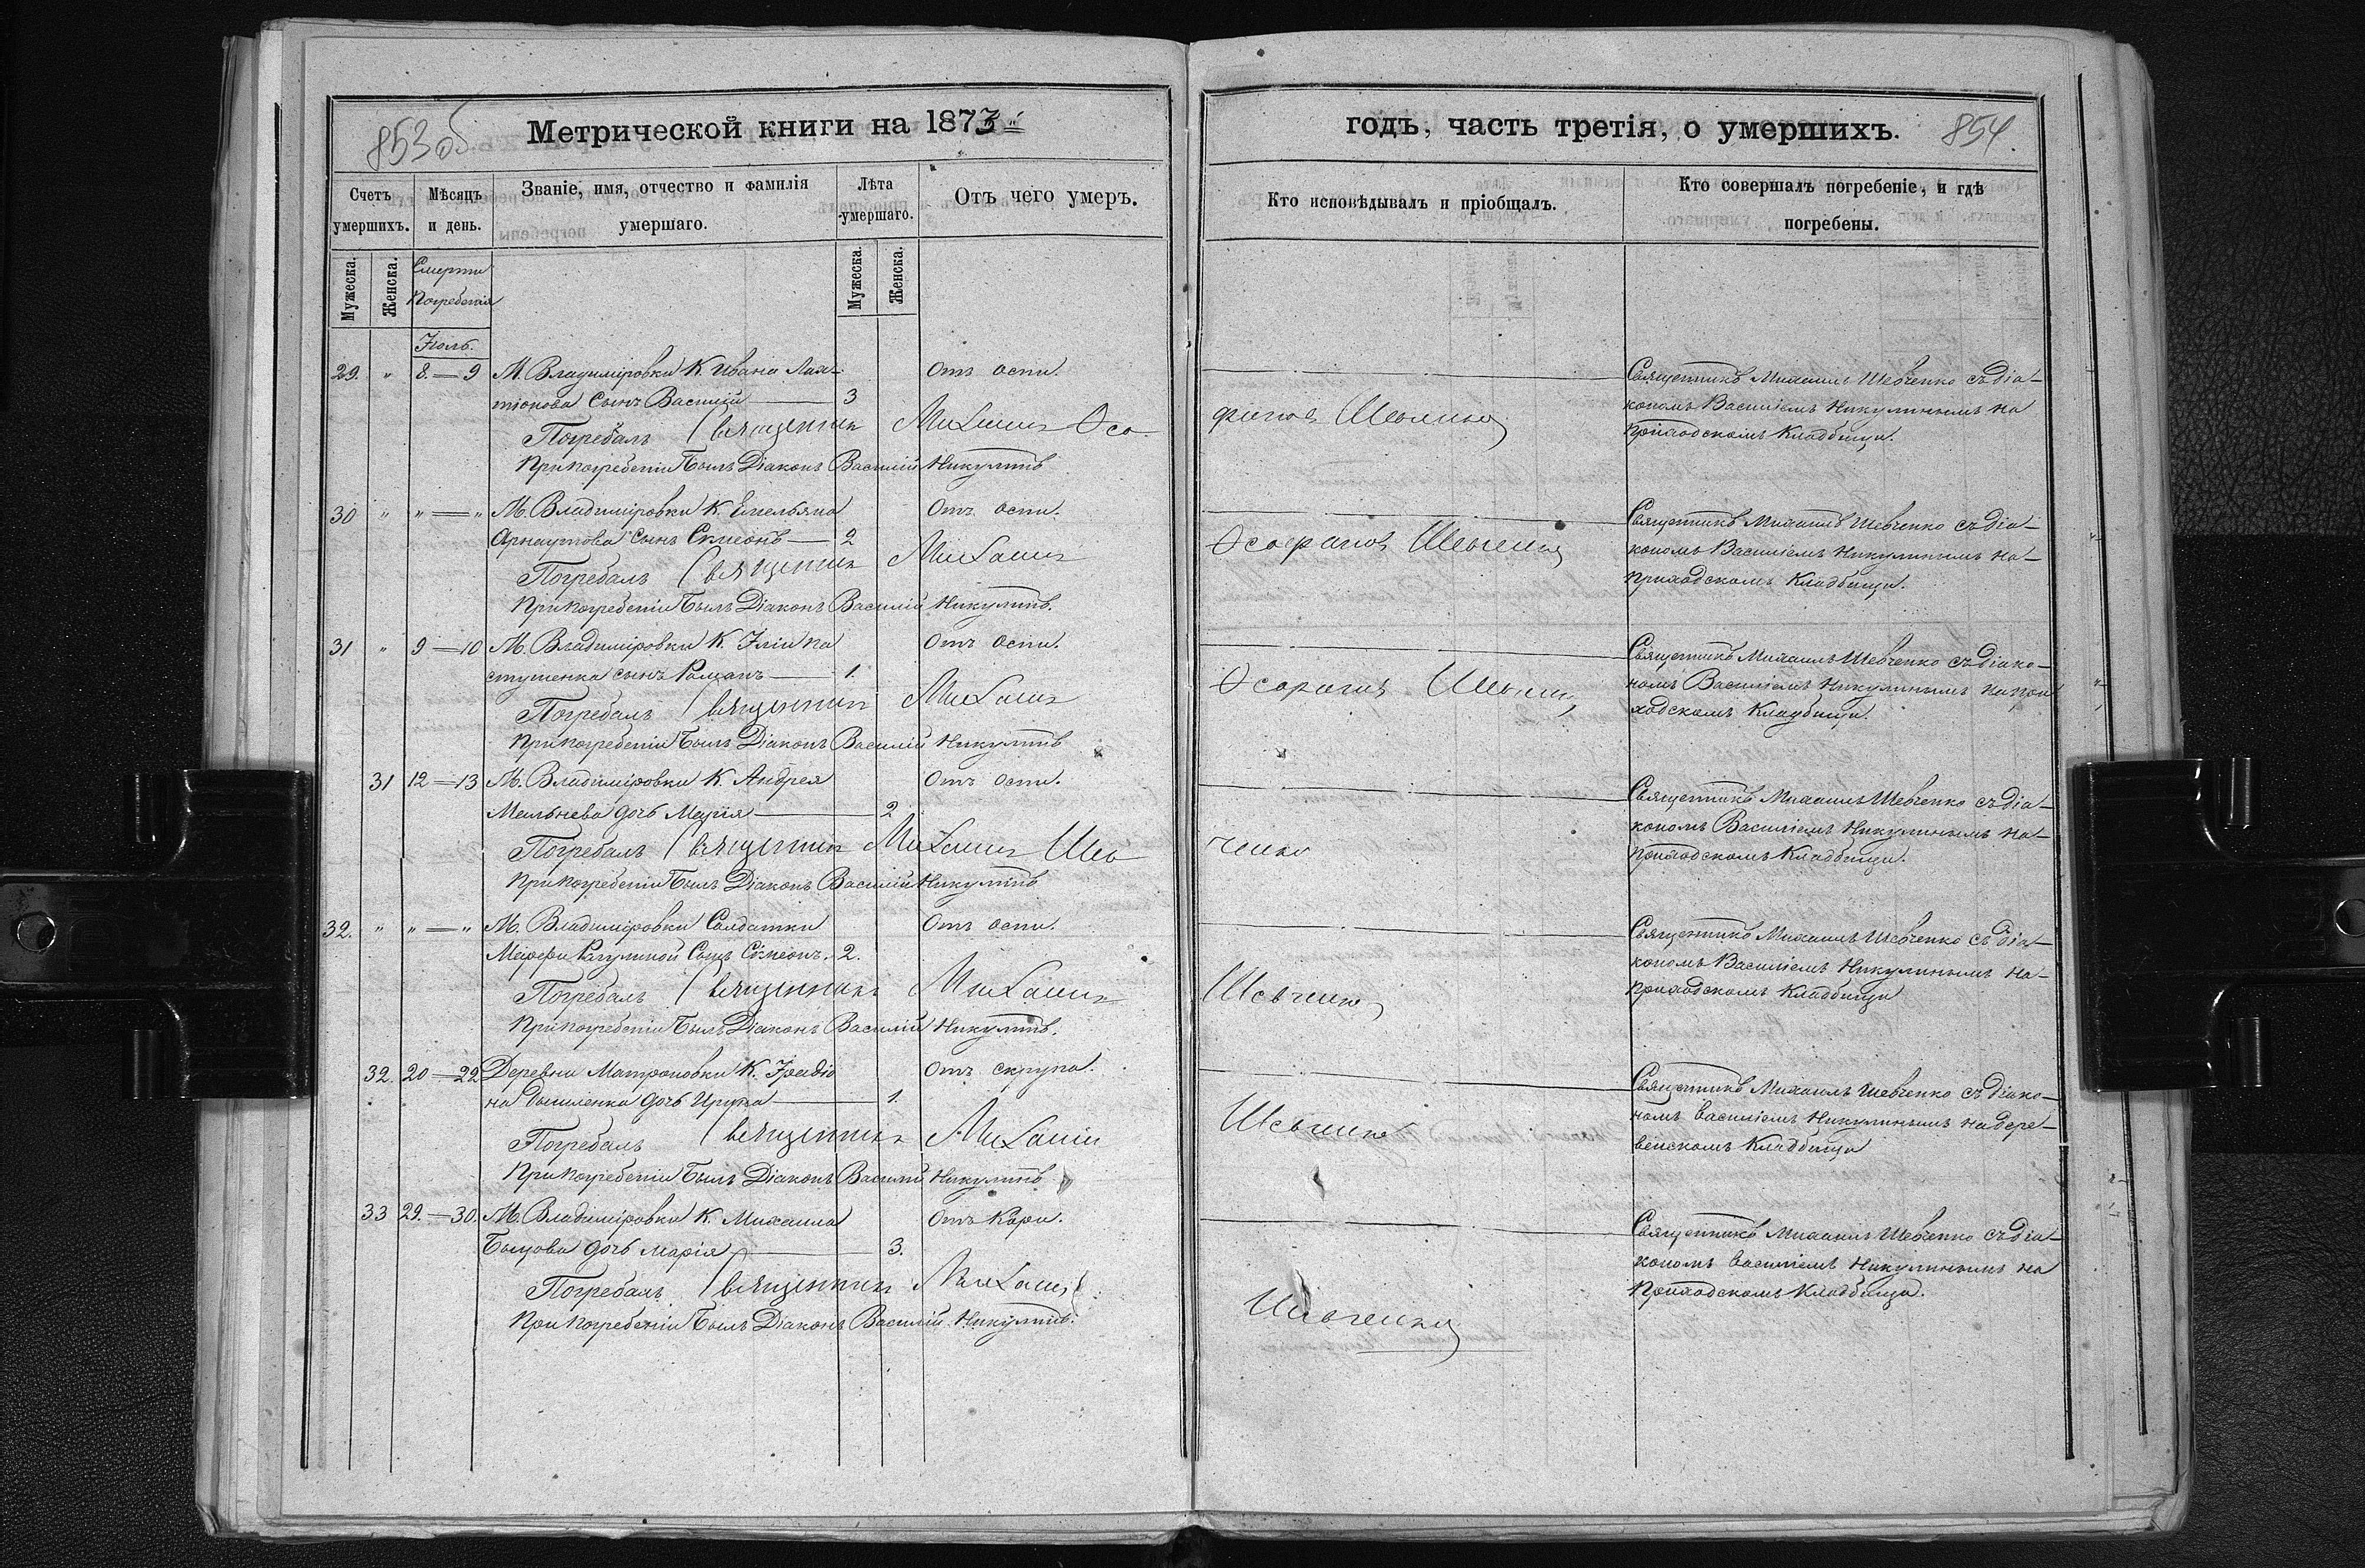 853об
Метрической книги на 1873й
Счетъ умершихъ.
Мѣсяцъ и день.
Званіе, имя, отчество и фамилія умершаго.
Лѣта умершаго.
Отъ чего умеръ.
Мужеска.
Женска.
Смерти
Погребенія
Мужеска.
Женска.
Іюль.
29. " 8.—9 М. Владиміровки К. Ивана
сынъ Василій — 3
Отъ оспи.
Погребалъ Священник Михаилъ Өео-
При погребеніи былъ Діаконъ Василій Никулинъ
30 " "—" М. Владиміровки К. Емельяна
Арнаутова сынъ Сѵмеонъ — 2
Отъ оспи.
Погребалъ Священник Михаилъ
При погребеніи былъ Діаконъ Василій Никулинъ.
31 " 9—10 М. Владиміровки К. Іліи
сынъ Романъ — 1.
Отъ оспи.
Погребалъ Священник Михаилъ
При погребеніи былъ Діаконъ Василій Никулинъ
31 12—13 М. Владиміровки К. Андрея
дочь Марія — 2
Отъ оспи.
Погребалъ Священник Михаилъ Шев
При погребеніи былъ Діаконъ Василій Никулинъ
32. " "—" М. Владиміровки Солдатки
Марѳи сынъ Сѵмеонъ. 2.
Отъ оспи.
Погребалъ Священникъ Михаилъ
При погребеніи былъ Діаконъ Василій Никулинъ.
32. 20—22 Деревни Матроновки К.
дочь — 1.
Отъ
Погребалъ Священникъ Михаил
При погребеніи былъ Діаконъ Василій Никулинъ
33 29.—30. М. Владиміровки К. Михаила
дочь Марія — 3.
Отъ Кори.
Погребалъ Священник Михаил
При погребеніи былъ Діаконъ Василій Никулинъ.
годъ, часть третія, о умершихъ.
854.
Кто исповѣдывалъ и пріобщалъ.
Кто совершалъ погребеніе, и гдѣ
погребены.
Священникъ Михаилъ Шевченко съ Діа-
кономъ Василіемъ Никулинымъ на
приходскомъ Кладбищи.
Шевченко
Священникъ Михаилъ Шевченко съ Діа-
кономъ Василіемъ Никулинымъ на-
приходскомъ Кладбищи.
Шевченко
Священникъ Михаилъ Шевченко съ Діако-
номъ Василіемъ Никулинымъ на при
ходскомъ Кладбищи.
Шевченко
Священникъ Михаилъ Шевченко съ Діа-
кономъ Василіемъ Никулинымъ на-
приходскомъ Кладбищи.
ченко
Священникъ Михаилъ Шевченко съ Діа-
кономъ Василіемъ Никулинымъ на-
приходскомъ Кладбищи
Шевченко
Священникъ Михаилъ Шевченко съ Діако-
номъ Василіемъ Никулинымъ на дере-
венскомъ Кладбищи
Шевченко
Священникъ Михаилъ Шевченко съ Діа-
кономъ Василіемъ Никулинымъ на
приходскомъ Кладбищи.
Шевченко